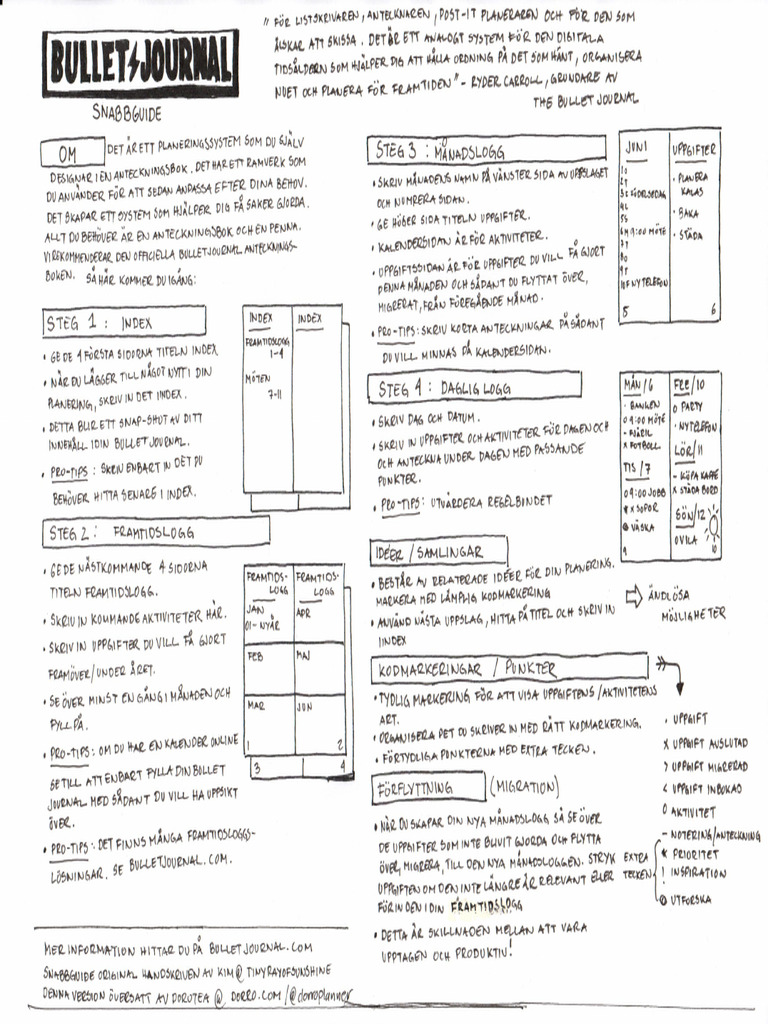 BULLET JOURNAL
SNABBGUIDE
"FÖR LISTSKRIVAREN, ANTECKNAREN, POST-IT PLANERAREN OCH FÖR DEN SOM
ÄLSKAR ATT SKISSA. DET ÄR ETT ANALOGT SYSTEM FÖR DEN DIGITALA
TIDSÅLDERN SOM HJÄLPER DIG ATT HÅLLA ORDNING PÅ DET SOM HÄNT, ORGANISERA
NUET OCH PLANERA FÖR FRAMTIDEN" - RYDER CARROLL, GRUNDARE AV
THE BULLET JOURNAL
OM DET ÄR ETT PLANERINGSSYSTEM SOM DU SJÄLV
DESIGNAR I EN ANTECKNINGSBOK. DET HAR ETT RAMVERK SOM
DU ANVÄNDER FÖR ATT SEDAN ANPASSA EFTER DINA BEHOV.
DET SKAPAR ETT SYSTEM SOM HJÄLPER DIG FÅ SAKER GJORDA.
ALLT DU BEHÖVER ÄR EN ANTECKNINGSBOK OCH EN PENNA.
VI REKOMMENDERAR DEN OFFICIELLA BULLETJOURNAL ANTECKNINGS-
BOKEN. SÅ HÄR KOMMER DU IGÅNG:
STEG 1: INDEX
• GE DE 4 FÖRSTA SIDORNA TITELN INDEX
• NÄR DU LÄGGER TILL NÅGOT NYTT I DIN
PLANERING, SKRIV IN DET INDEX.
• DETTA BLIR ETT SNAP-SHOT AV DITT
INNEHÅLL I DIN BULLET JOURNAL.
• PRO-TIPS: SKRIV ENBART IN DET DU
BEHÖVER HITTA SENARE I INDEX.
INDEX
FRAMTIDSLOGG
1-4
MÖTEN
7-11
INDEX
STEG 2: FRAMTIDSLOGG
• GE DE NÄSTKOMMANDE 4 SIDORNA
TITELN FRAMTIDSLOGG.
• SKRIV IN KOMMANDE AKTIVITETER HÄR.
• SKRIV IN UPPGIFTER DU VILL FÅ GJORT
FRAMÖVER/UNDER ÅRET.
• SE ÖVER MINST EN GÅNG I MÅNADEN OCH
FYLL PÅ.
• PRO-TIPS: OM DU HAR EN KALENDER ONLINE
SE TILL ATT ENBART FYLLA DIN BULLET
JOURNAL MED SÅDANT DU VILL HA UPPSIKT
ÖVER.
• PRO-TIPS: DET FINNS MÅNGA FRAMTIDSLOGGS-
LÖSNINGAR. SE BULLETJOURNAL.COM.
FRAMTIDS-
LOGG
JAN
01-NYÅR
FEB
MAR
1
FRAMTIDS-
LOGG
APR
MAJ
JUN
2
3 4
MER INFORMATION HITTAR DU PÅ BULLETJOURNAL.COM
SNABBGUIDE ORIGINAL HANDSKRIVEN AV KIM @ TINYRAYOFSUNSHINE
DENNA VERSION ÖVERSATT AV DOROTEA @ DORRO.COM / @dorroplanner
STEG 3: MÅNADSLOGG
• SKRIV MÅNADENS NAMN PÅ VÄNSTER SIDA AV UPPSLAGET
OCH NUMRERA SIDAN.
• GE HÖGER SIDA TITELN UPPGIFTER.
• KALENDERSIDAN ÄR FÖR AKTIVITETER.
• UPPGIFTSSIDAN ÄR FÖR UPPGIFTER DU VILL FÅ GJORT
DENNA MÅNADEN OCH SÅDANT DU FLYTTAT ÖVER,
MIGRERAT, FRÅN FÖREGÅENDE MÅNAD.
• PRO-TIPS: SKRIV KORTA ANTECKNINGAR PÅ SÅDANT
DU VILL MINNAS PÅ KALENDERSIDAN.
JUNI
1O
2T
3F FÖDELSEDAG
4L
5S
6M 9:00 MÖTE
7T
8O
9T
10F NY TELEFON
5
UPPGIFTER
• PLANERA
KALAS
• BAKA
• STÄDA
6
STEG 4: DAGLIG LOGG
• SKRIV DAG OCH DATUM.
• SKRIV IN UPPGIFTER OCH AKTIVITETER FÖR DAGEN OCH
OCH ANTECKNA UNDER DAGEN MED PASSANDE
PUNKTER.
• PRO-TIPS: UTVÄRDERA REGELBINDET
MÅN/6
• BANKEN
O 9:00 MÖTE
- FJÄRIL
X FOTBOLL
TIS/7
O 9:00 JOBB
* X SOPOR
VÄSKA
9
FRE/10
O PARTY
• NY TELEFON
LÖR/11
- KÖPA KAFFE
X STÄDA BORD
SÖN/12
O VILA
10
IDÉER / SAMLINGAR
• BESTÅR AV RELATERADE IDÉER FÖR DIN PLANERING.
MARKERA MED LÄMPLIG KODMARKERING
• ANVÄND NÄSTA UPPSLAG, HITTA PÅ TITEL OCH SKRIV IN
I INDEX
⇨ ÄNDLÖSA
MÖJLIGHETER
KODMARKERINGAR / PUNKTER
• TYDLIG MARKERING FÖR ATT VISA UPPGIFTENS/AKTIVITETENS
ART.
• ORGANISERA DET DU SKRIVER IN MED RÄTT KODMARKERING.
• FÖRTYDLIGA PUNKTERNA MED EXTRA TECKEN.
• UPPGIFT
X UPPGIFT AVSLUTAD
> UPPGIFT MIGRERAD
< UPPGIFT INBOKAD
O AKTIVITET
- NOTERING/ANTECKNING
EXTRA
TECKEN
* PRIORITET
! INSPIRATION
UTFORSKA
FÖRFLYTTNING (MIGRATION)
• NÄR DU SKAPAR DIN NYA MÅNADSLOGG SÅ SE ÖVER
DE UPPGIFTER SOM INTE BLIVIT GJORDA OCH FLYTTA
ÖVER, MIGRERA, TILL DEN NYA MÅNADSLOGGEN. STRYK
UPPGIFTEN OM DEN INTE LÄNGRE ÄR RELEVANT ELLER
FÖR IN DEN I DIN FRAMTIDSLOGG
• DETTA ÄR SKILLNADEN MELLAN ATT VARA
UPPTAGEN OCH PRODUKTIV!